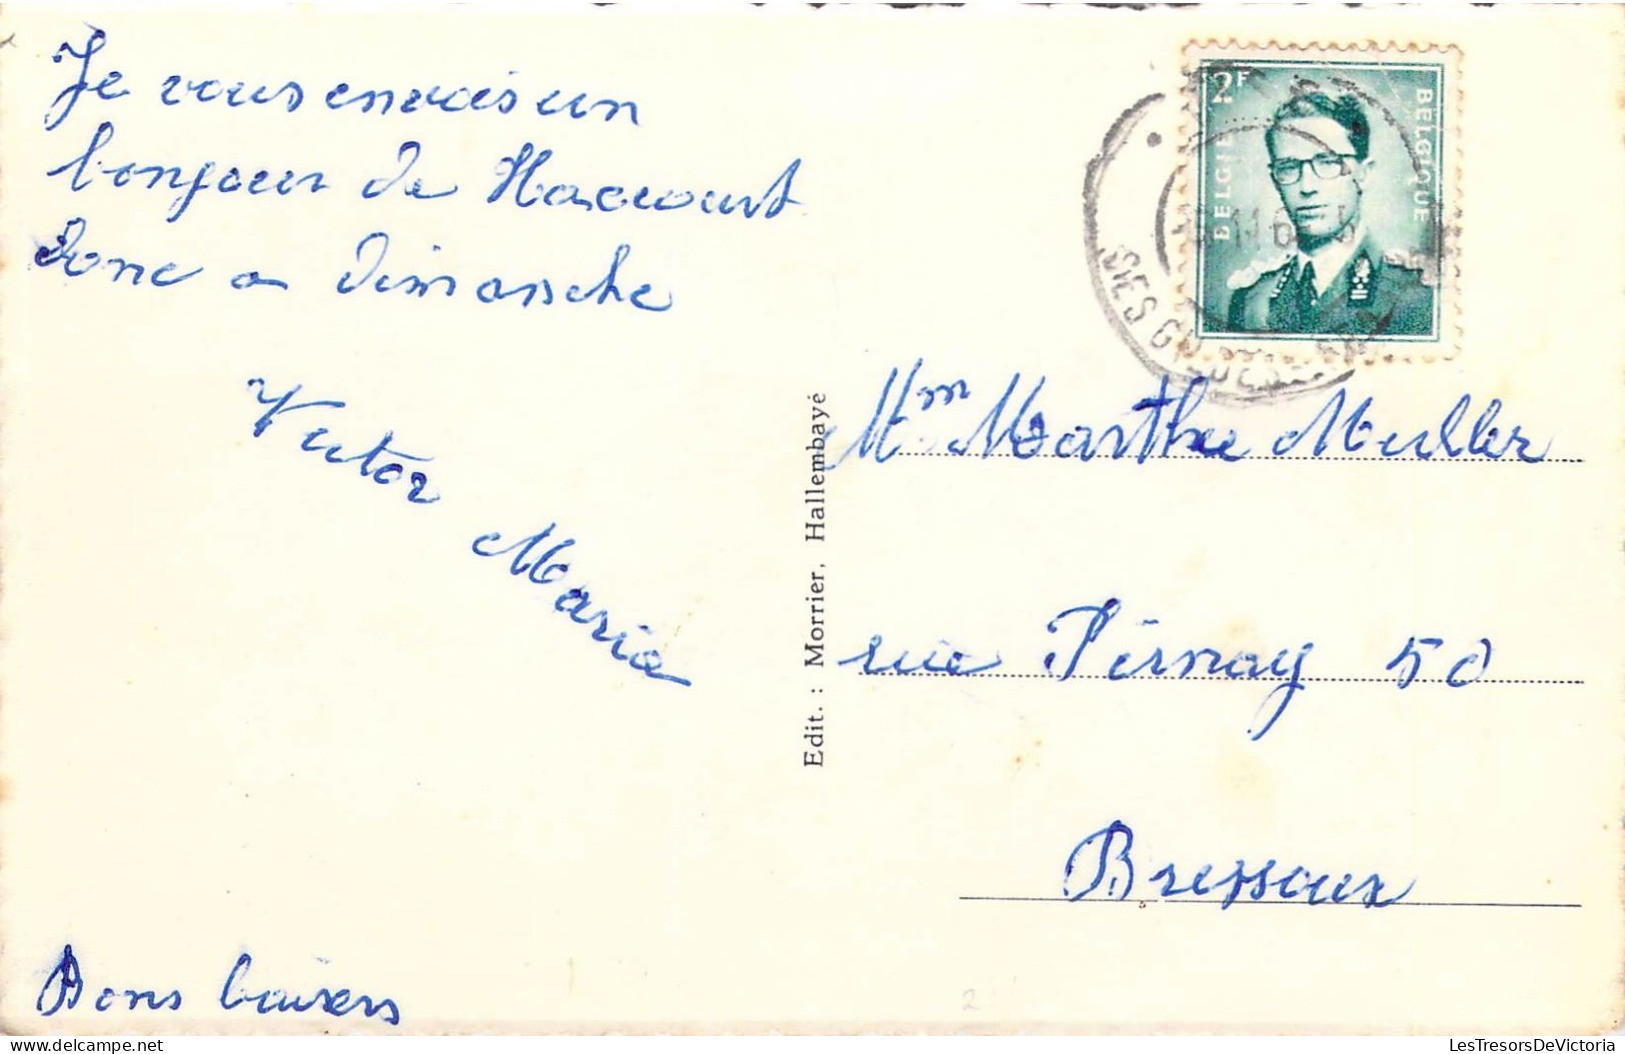 Je vous envois un
bonjour de Haccourt
Donc a Dimansche
Victor
Maria
Bons baisers
Edit. : Morrier, Hallembayé
2F
BELGIE
BELGIQUE
Mm Marthe Muller
rue Pirnay 50
Bressoux
LesTresorsDeVictoria
LesTresorsDeVictoria.com